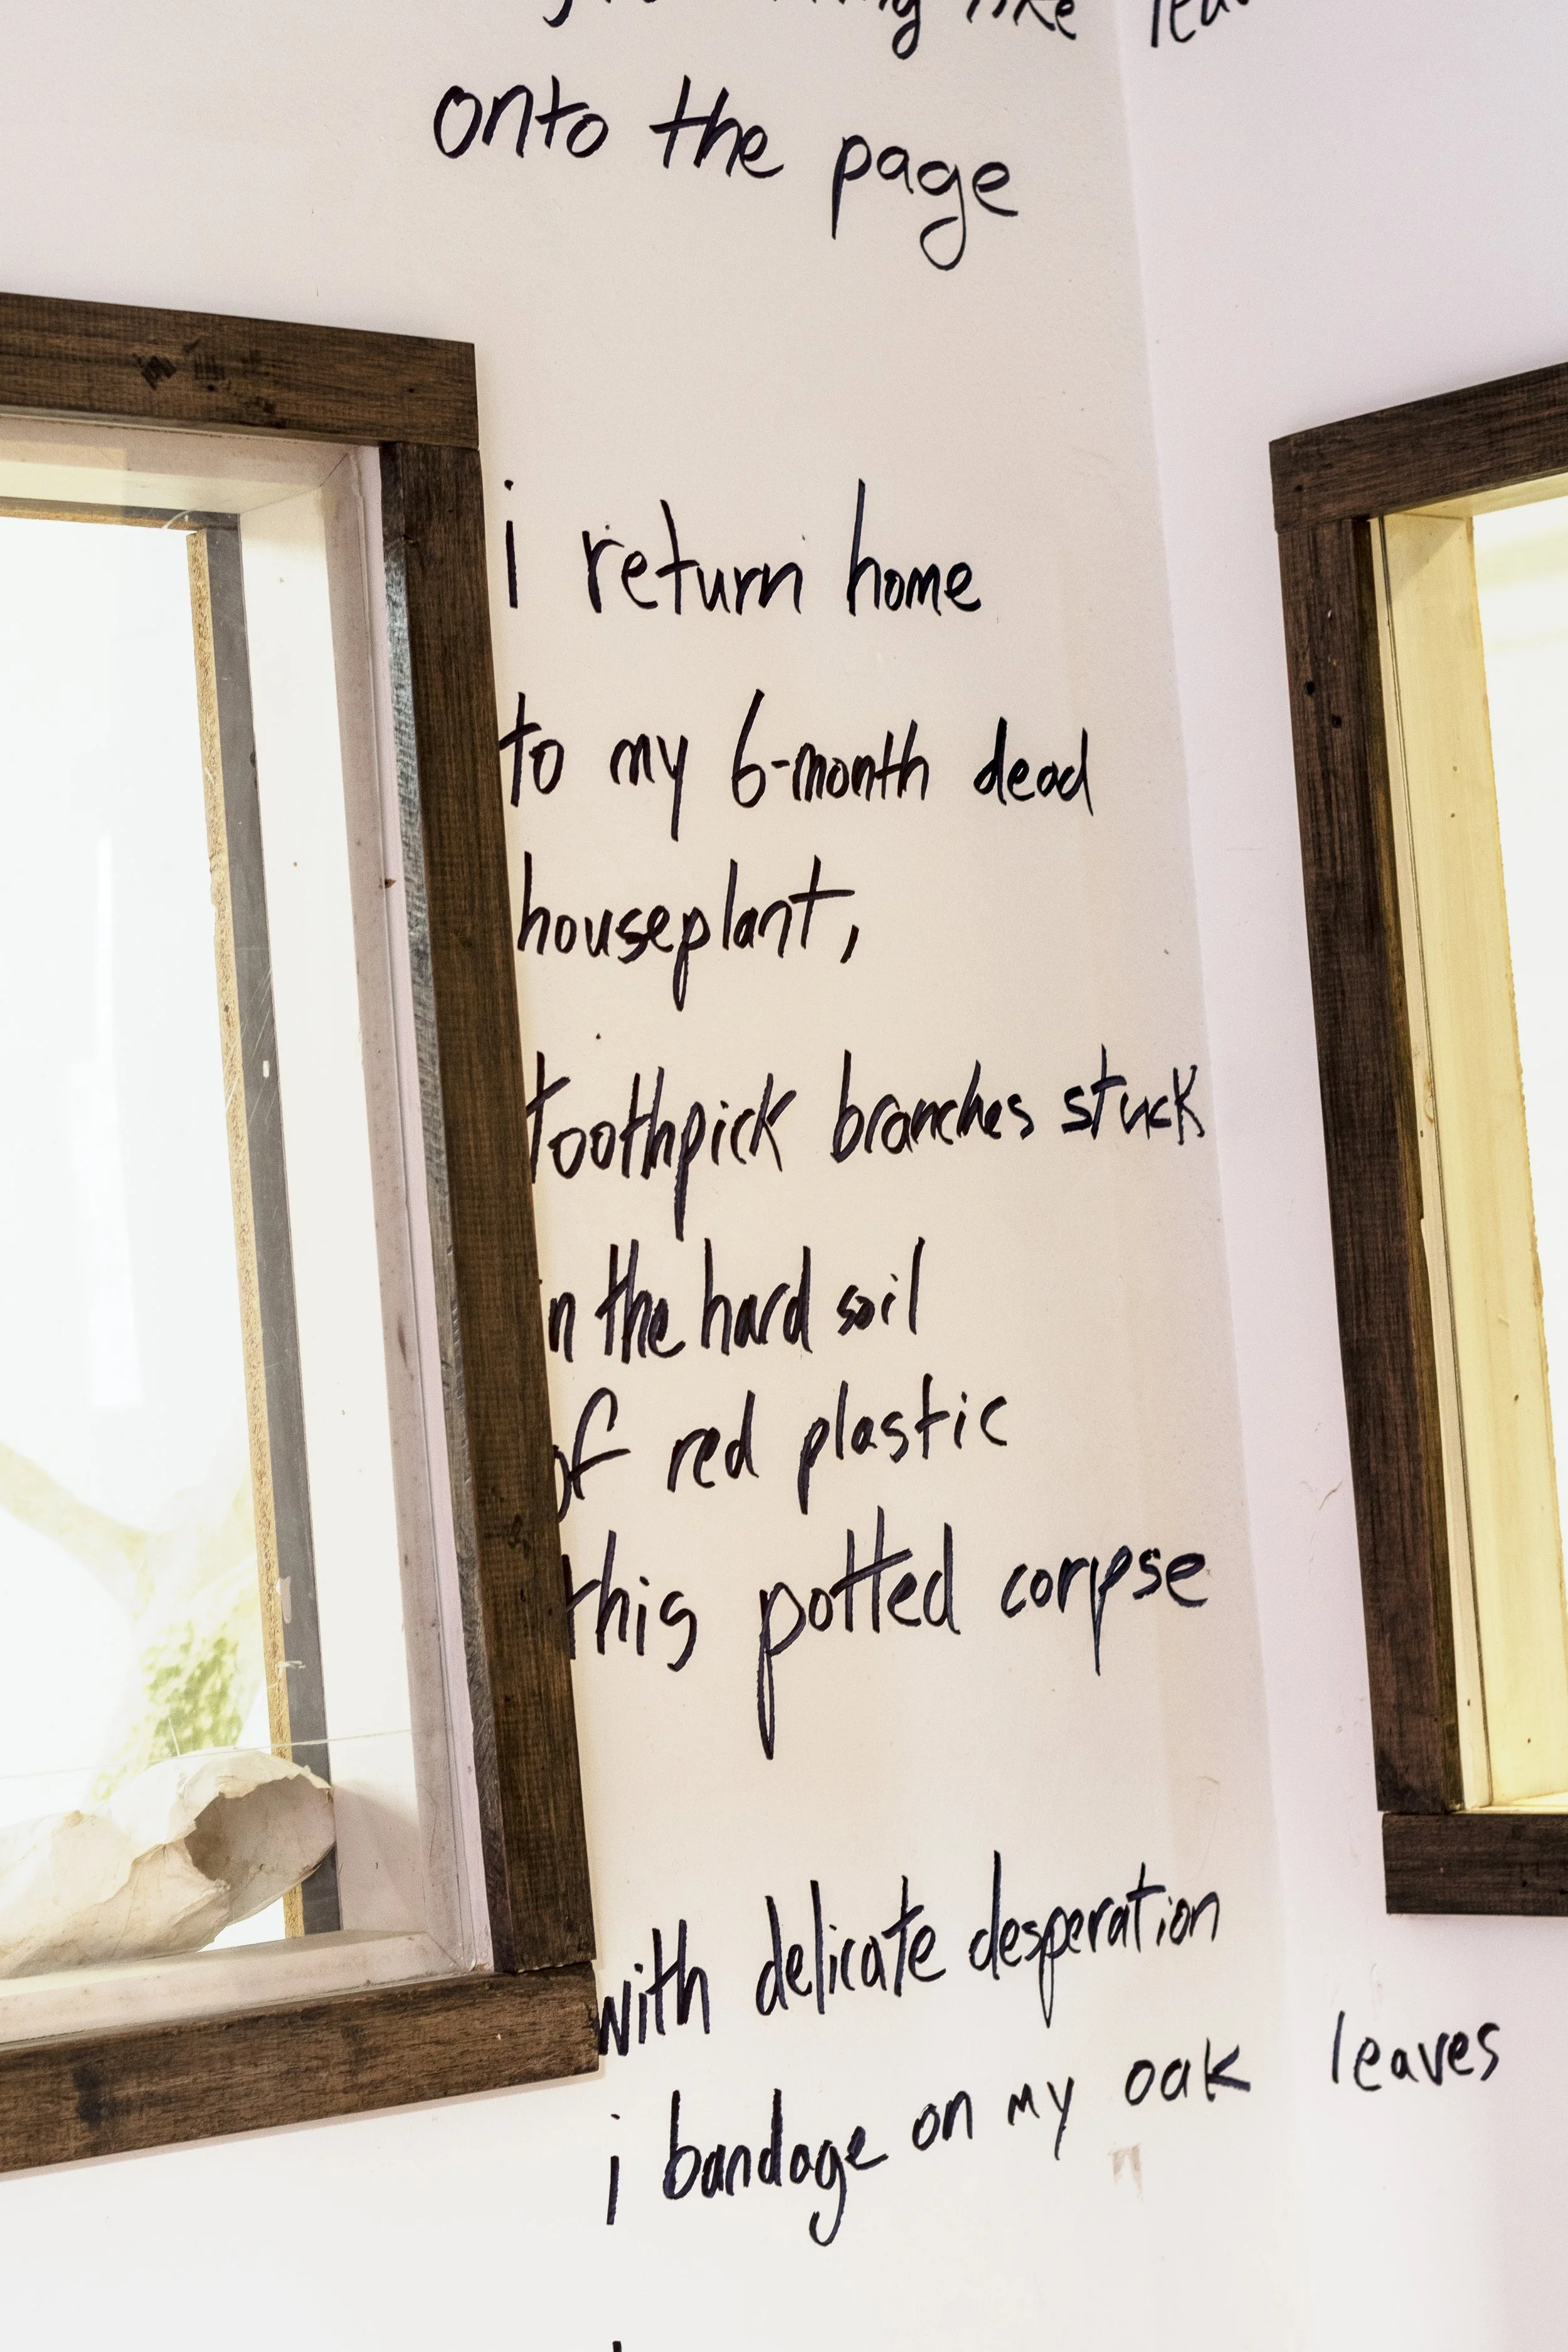 like
onto the page
i return home
to my 6-month dead
houseplant,
toothpick branches stuck
in the hard soil
of red plastic
this potted corpse
with delicate desperation
i bandage on my oak leaves